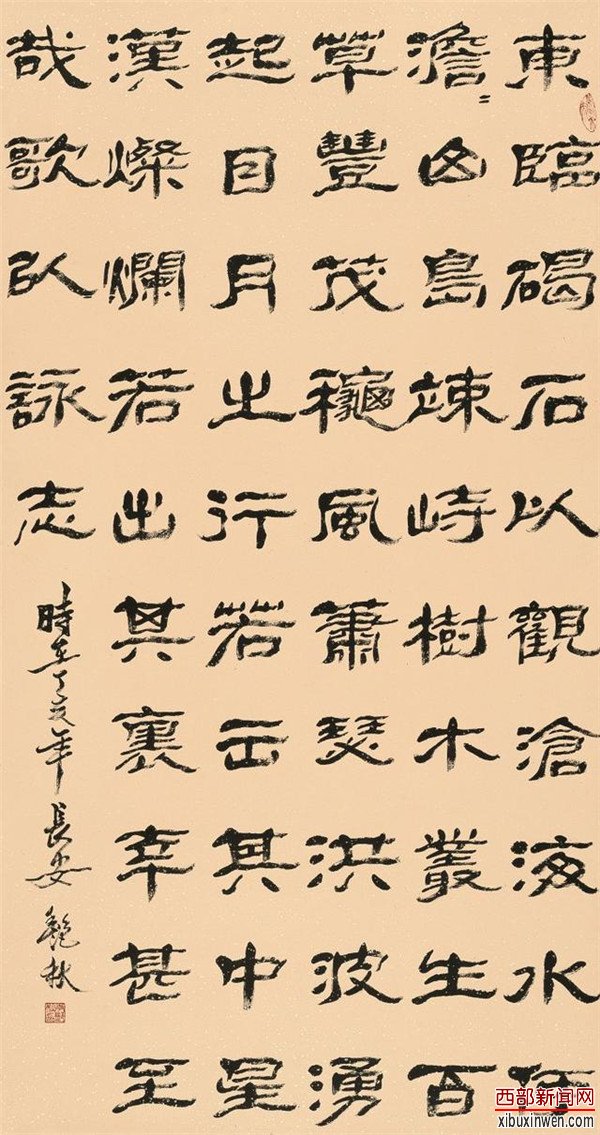 東臨碣石以觀滄海水何
澹〻山島竦峙樹木叢生百
草豐茂龝風蕭瑟洪波湧
起日月之行若出其中星
漢燦爛若出其裏幸甚至
哉歌以詠志
時在丁亥年長安秋
西部新闻网
xibuxinwen.com